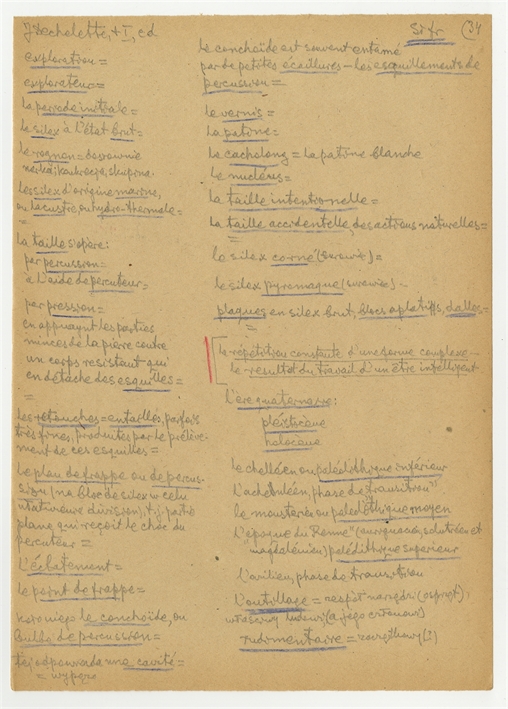 J. Dechelette, t I, cd
exploration =
explorateur =
la periode initiale =
le silex à l'état brut =
le rognon = dosłownie
nerka; konkrecja, skupina.
les silex d'origine marine,
ou lacustre, ou hydro-thermale =
=
La taille s'opère:
par percussion =
à l'aide de percuteur =
par pression =
en appuyant les parties
minces de la pierre contre
un corps resistant qui
en détache des esquilles =
=
Les retouches = entailles, parfois
très fines, produites par le prélève-
ment de ces esquilles =
Le plan de frappe ou de percus-
sion (na bloc de silex w celu
), t.j. partie
plane qui reçoit le choc du
percuteur =
L'éclatement =
Le point de frappe =
le conchoïde, ou
bulbe de percussion =
tej odpowiada une cavité =
=
Silex (34
Le conchoïde est souvent entamé
par de petites écaillures – les esquillements de
percussion =
Le vernis =
La patine =
Le cacholong = la patine blanche
Le nucléus =
La taille intentionelle =
La taille accidentelle, des actions naturelles =
=
le silex corné (surowiec) =
le silex pyromaque (surowiec) –
plaques en silex brut, blocs aplatis, dalles =
=
la répétition constante d'une forme complexe –
le résultat du travail d'un être intelligent
L'ère quaternaire:
pleistocene
holocene
le chelléen ou paléolithique inférieur
L'acheuléen, phase de transition
le mousterien ou paleolithique moyen
L'époque du Renne" (aurignacien, solutréen et
magdalénien) paléolithique superieur
L'azilien, phase de transition
L'outillage = zespół narzędzi (osprzęt),
rudimentaire =